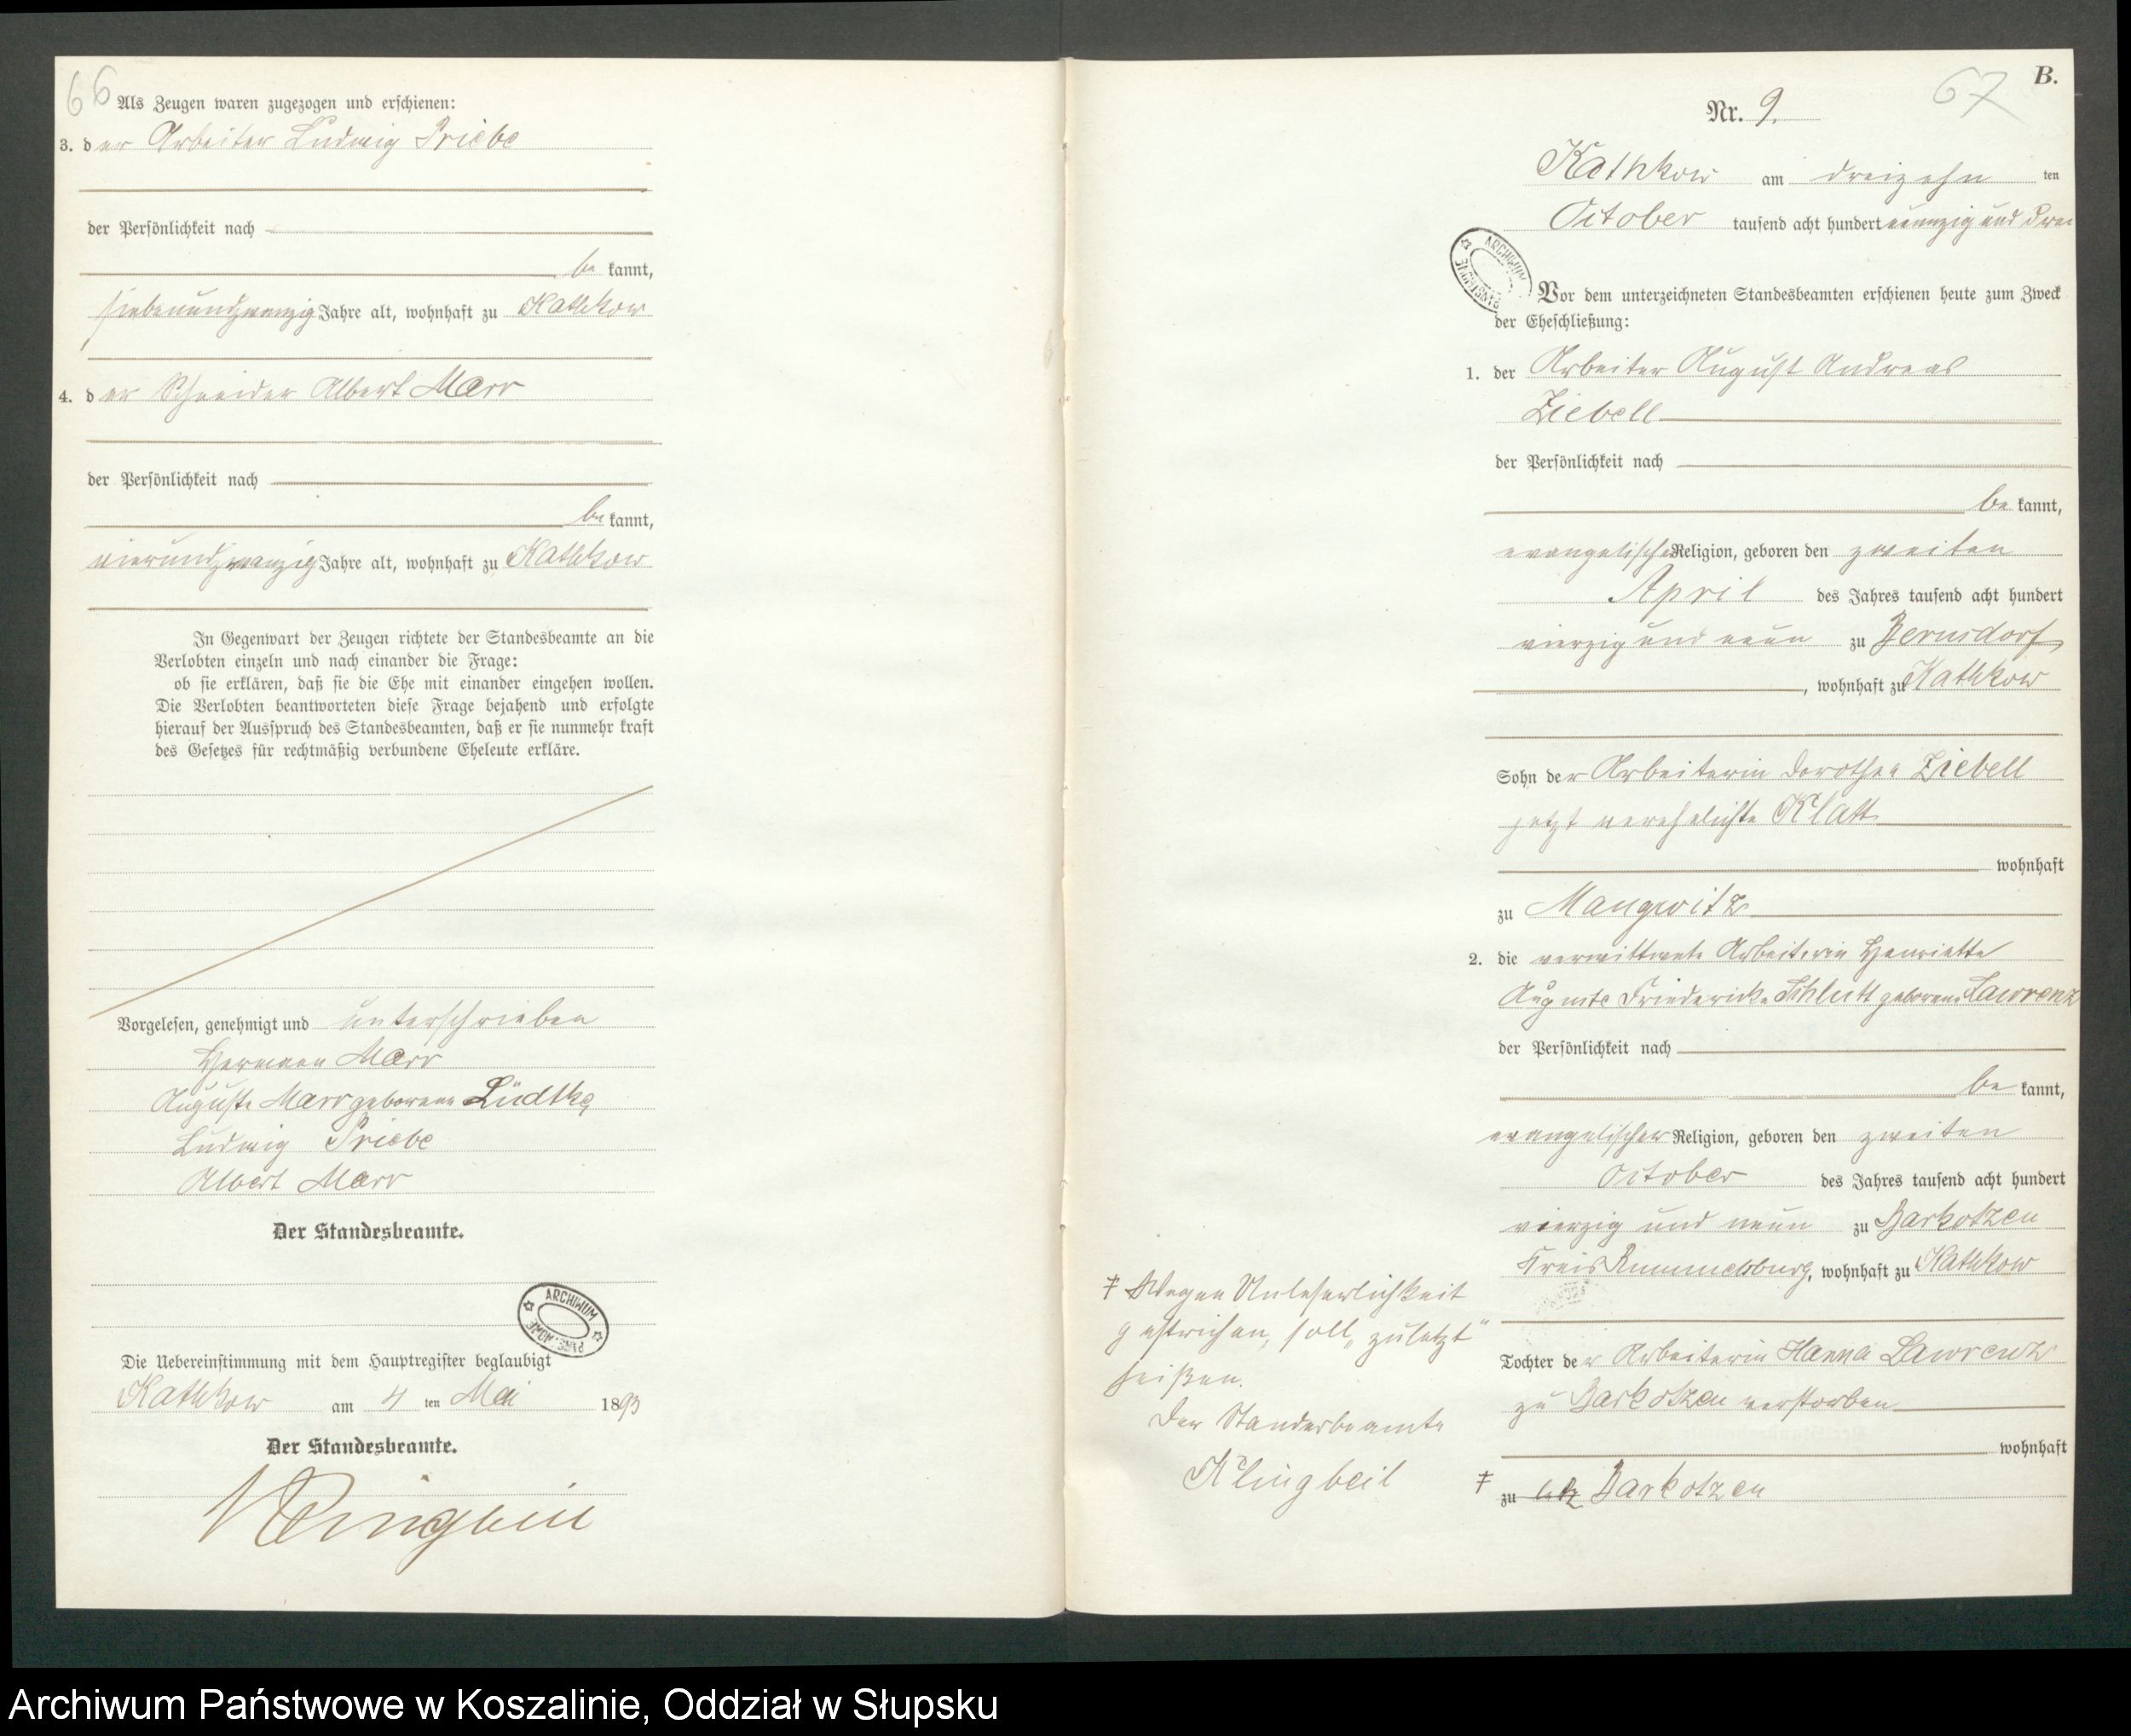 66
Als Zeugen waren zugezogen und erschienen:
3. der Arbeiter Ludwig Priebe
der Persönlichkeit nach
be kannt,
siebenundzwanzig Jahre alt, wohnhaft zu Kathkow
4. der Schneider Albert Marr
der Persönlichkeit nach
be kannt,
vierundzwanzig Jahre alt, wohnhaft zu Kathkow
In Gegenwart der Zeugen richtete der Standesbeamte an die
Verlobten einzeln und nach einander die Frage:
ob sie erklären, daß sie die Ehe mit einander eingehen wollen.
Die Verlobten beantworteten diese Frage bejahend und erfolgte
hierauf der Ausspruch des Standesbeamten, daß er sie nunmehr kraft
des Gesetzes für rechtmäßig verbundene Eheleute erkläre.
Vorgelesen, genehmigt und unterschrieben
Hermann Marr
Auguste Marr geborene Lüdtke
Ludwig Priebe
Albert Marr
Der Standesbeamte.
ARCHIWUM PAŃSTWOWE
Die Uebereinstimmung mit dem Hauptregister beglaubigt
Kathkow am 4 ten Mai 1893
Der Standesbeamte.
Klingbeil
67
B.
Nr. 9.
Kathkow am dreizehn ten
October tausend acht hundert neunzig und drei
ARCHIWUM PAŃSTWOWE
Vor dem unterzeichneten Standesbeamten erschienen heute zum Zweck
der Eheschließung:
1. der Arbeiter August Andreas
Ziebell
der Persönlichkeit nach
be kannt,
evangelischer Religion, geboren den zweiten
April des Jahres tausend acht hundert
vierzig und neun zu Bernsdorf,
, wohnhaft zu Kathkow
Sohn der Arbeiterin Dorothea Ziebell
jetzt verehelichte Klatt
wohnhaft
zu Mangwitz
2. die verwittwete Arbeiterin Henriette
Auguste Friedericke Schlutt geborene Lawrenz
der Persönlichkeit nach
be kannt,
evangelischer Religion, geboren den zweiten
October des Jahres tausend acht hundert
vierzig und neun zu Barkotzen
Kreis Rummelsburg, wohnhaft zu Kathkow
Tochter der Arbeiterin Hanna Lawrenz
zu Barkotzen verstorben
wohnhaft
‡ zu Barkotzen
‡ Wegen Unleserlichkeit
gestrichen, soll „zuletzt"
heißen.
Der Standesbeamte
Klingbeil
Archiwum Państwowe w Koszalinie, Oddział w Słupsku